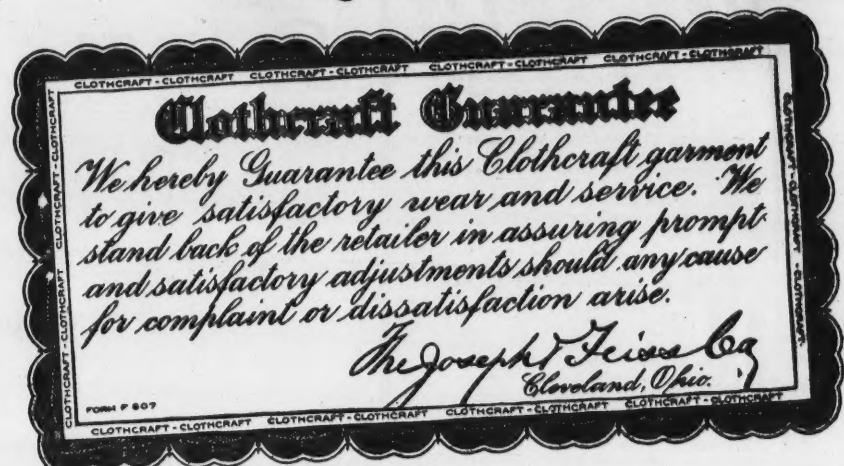 CLOTHCRAFT - CLOTHCRAFT CLOTHCRAFT - CLOTHCRAFT CLOTHCRAFT - CLOTHCRAFT CLOTHCRAFT - CLOTHCRAFT
Clothcraft Guarantee
We hereby Guarantee this Clothcraft garment
to give satisfactory wear and service. We
stand back of the retailer in assuring prompt
and satisfactory adjustments should any cause
for complaint or dissatisfaction arise.
The Joseph & Feiss Co
Cleveland, Ohio.
FORM F 807
CLOTHCRAFT - CLOTHCRAFT CLOTHCRAFT - CLOTHCRAFT CLOTHCRAFT - CLOTHCRAFT CLOTHCRAFT - CLOTHCRAFT
CLOTHCRAFT - CLOTHCRAFT - CLOTHCRAFT - CLOTHCRAFT
CLOTHCRAFT - CLOTHCRAFT - CLOTHCRAFT